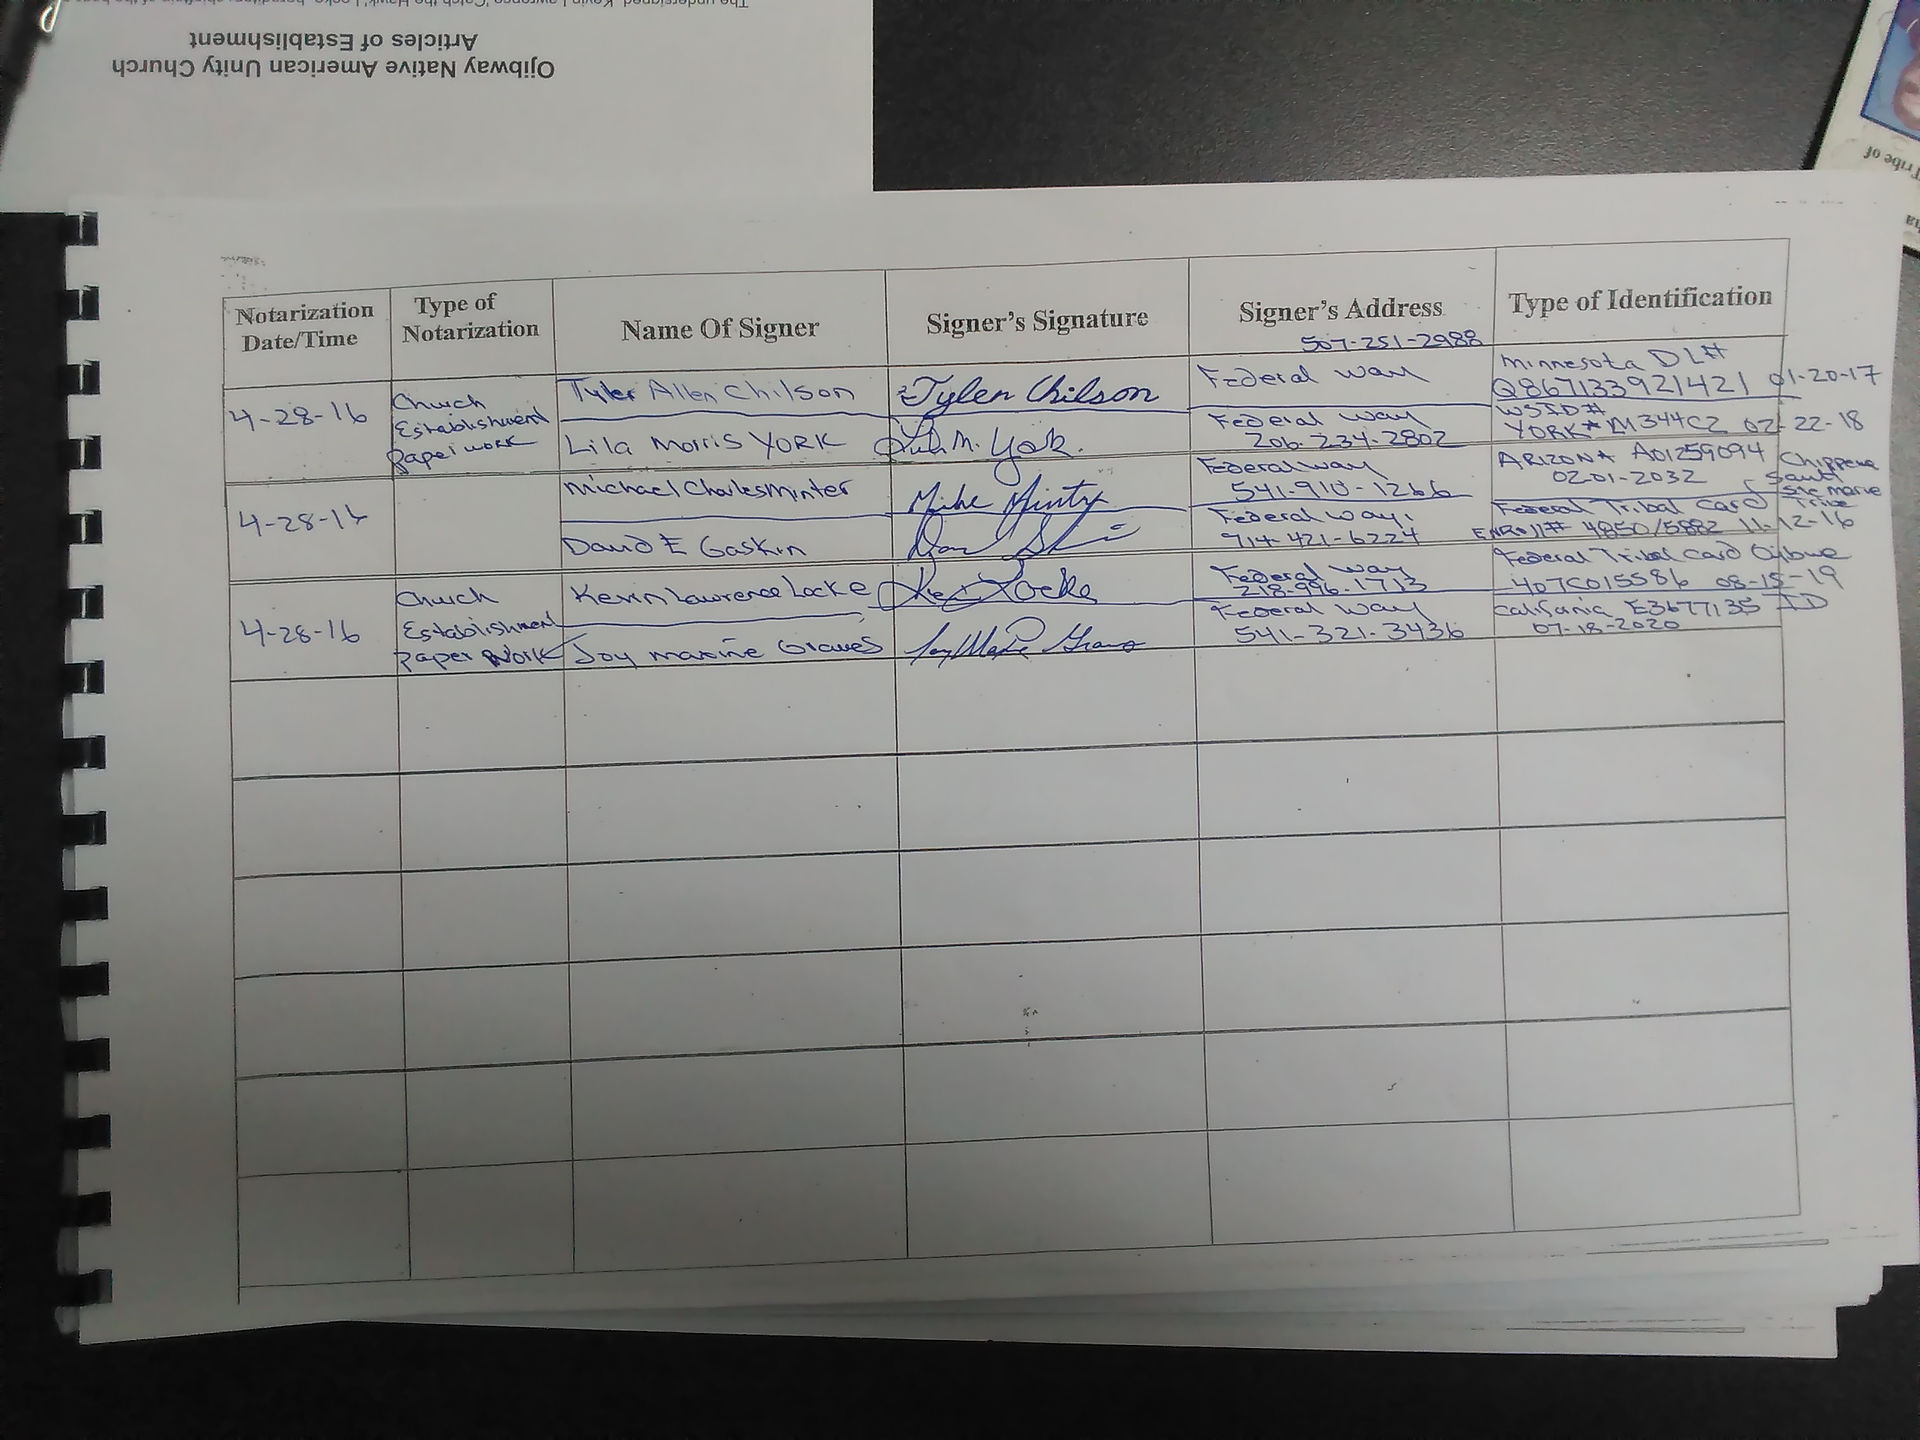 The undersigned, Kevin Lawrence 'Catch the Hawk' Locke, hereditary chieftain of the
Articles of Establishment
Ojibway Native American Unity Church
Tribe of
Notarization Date/Time
Type of Notarization
Name Of Signer
Signer's Signature
Signer's Address
Type of Identification
507-251-2988
4-28-16
Church Establishment paper work
Tyler Allen Chilson
Tyler Chilson
Federal way
Minnesota DL#
Q867133921421 01-20-17
Lila Morris YORK
Lila M. York.
Federal way
206-234-2802
WSID#
YORK*LM344CZ 02-22-18
4-28-16
Michael Charles Minter
Mike Minty
Federal way
541-910-1266
ARIZONA A01259094
02-01-2032
Chippewa
Sault
Ste marie
Tribe
David E Gaskin
Federal way.
714-421-6224
Federal Tribal Card
ENROLL# 4850/5882 11-12-16
4-28-16
Church Establishment paper work
Kevin Lawrence Locke
Locke
Federal way
218-996-1713
Federal Tribal Card Ojibwe
407C015586 08-15-19
Joy marine Graves
Federal way
541-321-3436
California E3677135 ID
07-18-2020